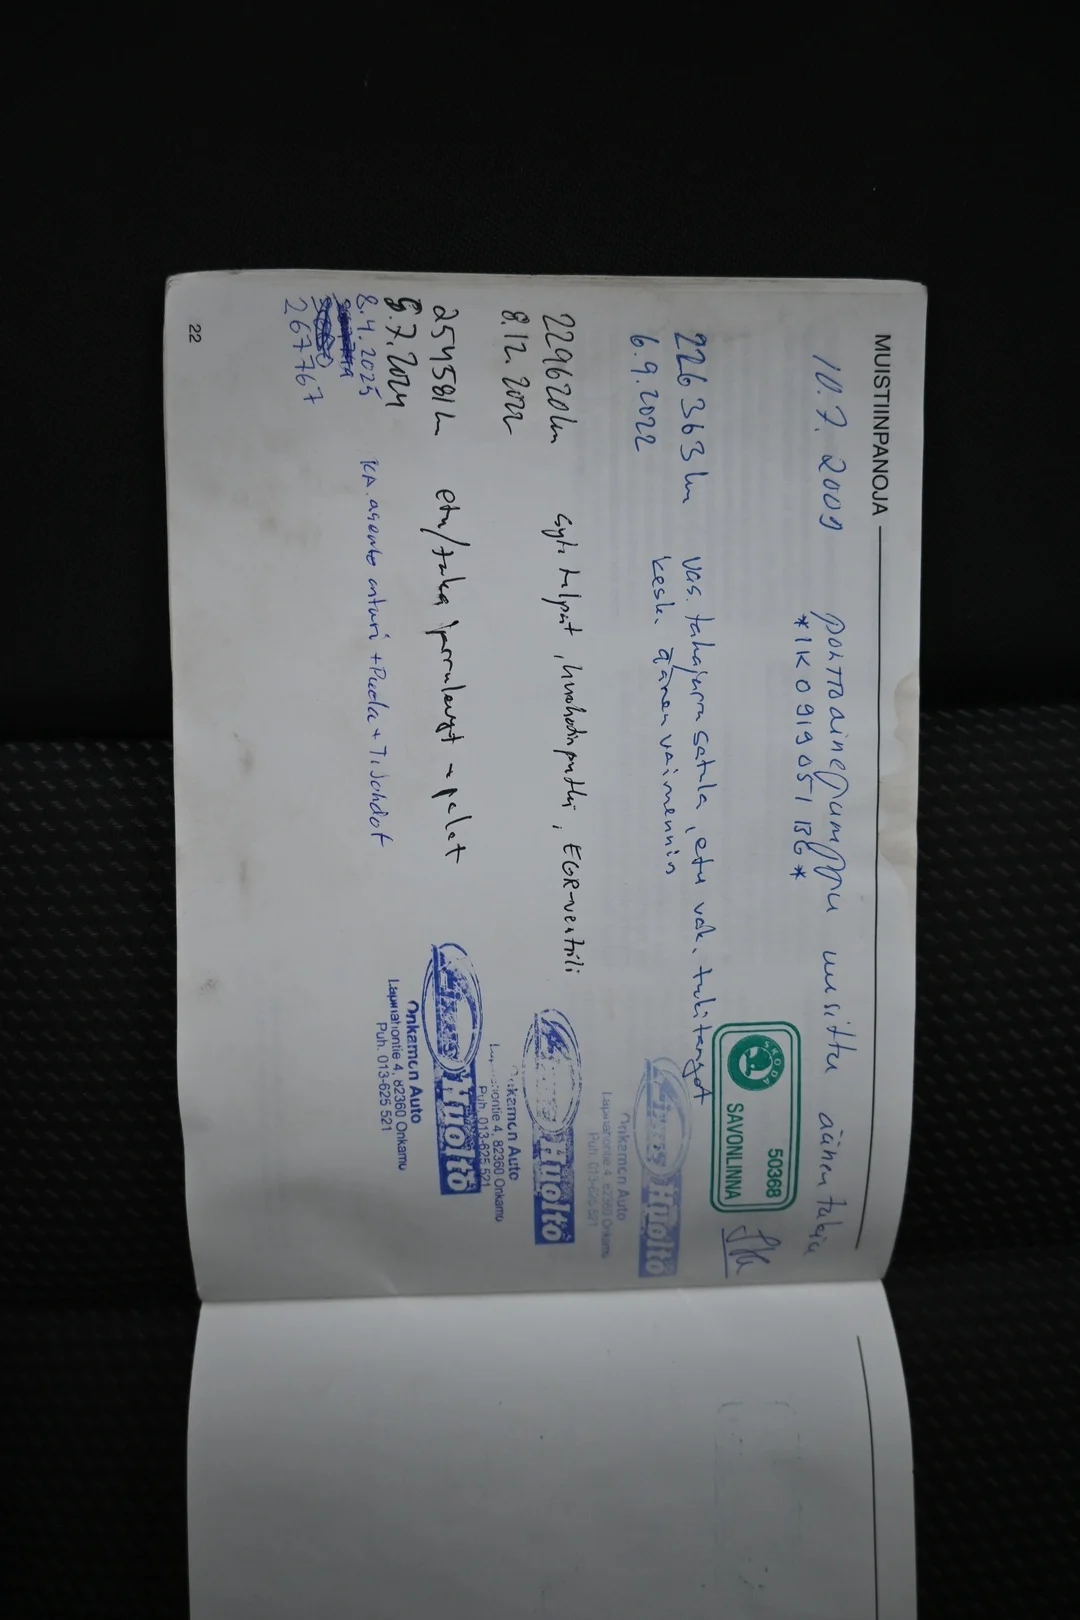 MUISTIINPANOJA
10.7. 2009 polttoainepumppu uusittu äänen takia
*1K0919051BG*
50368
SKODA
SAVONLINNA
226363 km vas. takajarrusatula, etu vak. tukitangot
6.9.2022 kesk. äänen vaimennin
Huolto
Onkamon Auto
Lapinahontie 4, 82360 Onkamo
Puh. 013-625 521
229620 km syt. tulpat, huohotinputki, EGR-venttiili
8.12.2022
Huolto
Onkamon Auto
Lapinahontie 4, 82360 Onkamo
Puh. 013-625 521
254581 km etu/taka jarrulevyt + palat
5.7.2024
Huolto
Onkamon Auto
Lapinahontie 4, 82360 Onkamo
Puh. 013-625 521
8.4.2025 KA. asento anturi + Puola + T. Johdot
267767
22